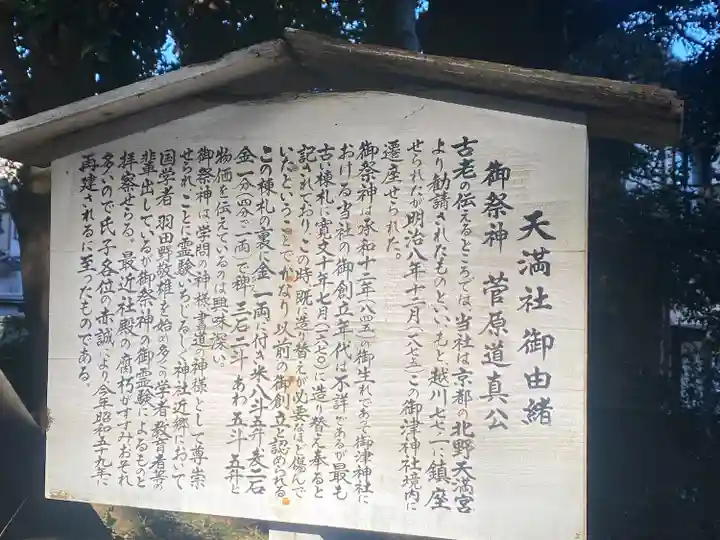 天満社御由緒
御祭神 菅原道真公
古老の伝えるところでは、当社は京都の北野天満宮
より勧請されたものといい、もと越川七七一に鎮座
せられたが明治八年十二月(一八七五)この御津神社境内に
遷座せられた。
御祭神は承和十二年(八四五)の御生れであって御津神社に
おける当社の御創立年代は不詳であるが最も
古い棟札に寛文十年七月(一六七〇)に造り替え奉ると
記されており、この時既に造り替えが必要なほど傷んで
いたということでかなり以前の御創立と認められる。
この棟札の裏に金一両に付き米八斗五升、麦二石
金一分(四分で一両)で稗 三石二斗 あわ 五斗 五升と
物価を伝えているのは興味深い。
御祭神は学問の神様、書道の神様として尊崇
せられ、ことに霊験いちじるしく神社近郷において
国学者 羽田野敬雄を始め多くの学者、教育者等の
輩出しているが御祭神の御霊験によるものと
拝察せらる。最近社殿の腐朽がすすみ、おそれ
多いので氏子各位の赤誠により今年昭和五十九年に
再建されるに至ったものである。